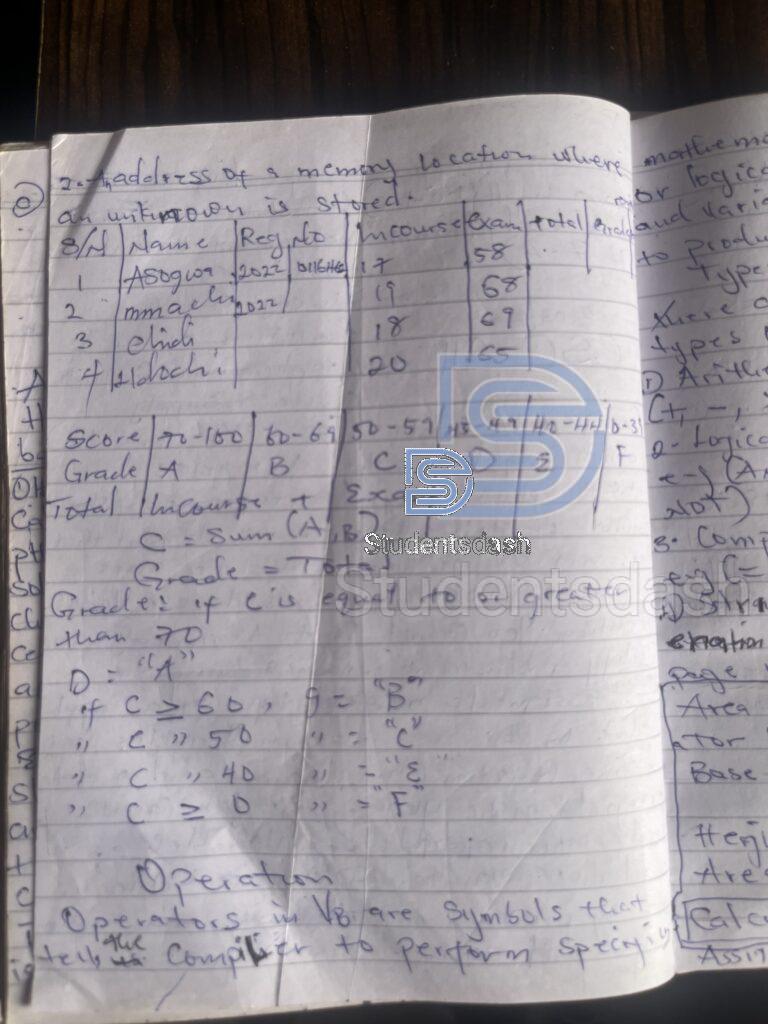 2. An address of a memory location where
an unknown is stored.
S/N Name Reg No Incourse Exam total Grade
1 Asogwa 2022 17 58
2 mmachi 2022 19 68
3 chidi 18 69
4 20 65
Score 70-100 60-69 50-59 45-49 40-44 0-39
Grade A B C D E F
Total Incourse + Exa
C = Sum (A, B)
Grade = Total
Grade: if C is equal to or greater
than 70
D = "A"
if C ≥ 60, g = "B"
,, C ,, 50 ,, = "C"
,, C ,, 40 ,, = "E"
,, C ≥ 0 ,, = "F"
Operation
Operators in VB are symbols that
tells the Compiler to perform specific
Studentsdash
Studentsdash
or logica
and varia
to produ
types
there a
types
1) Arithe
(+, -,
2- Logica
NOT)
3. Comp
e.g C =
page
Area
ator
Base
Area
Calc
Assig